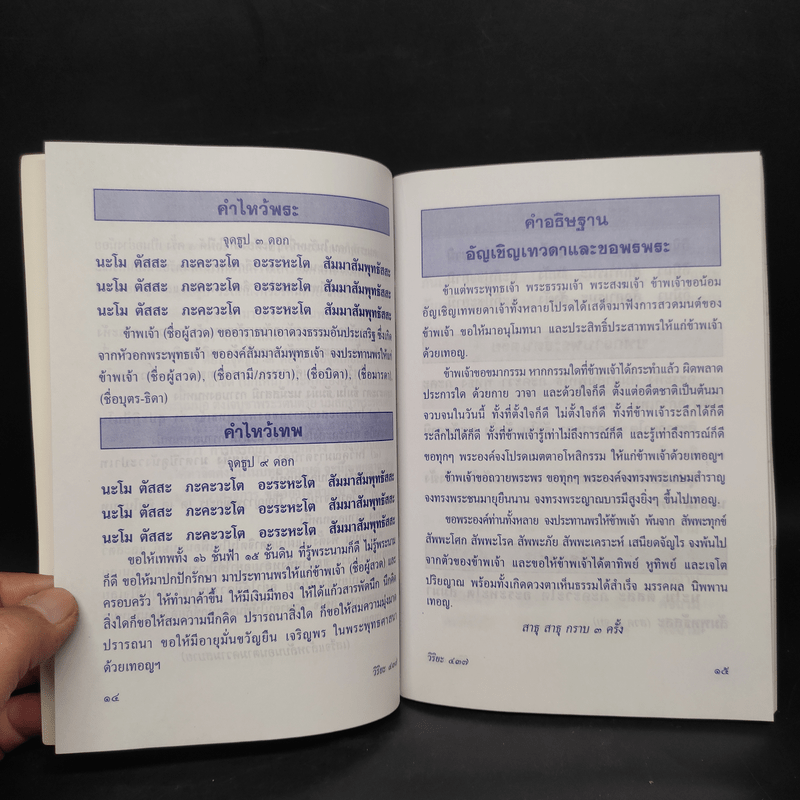 คำไหว้พระ
จุดธูป ๓ ดอก
นะโม ตัสสะ ภะคะวะโต อะระหะโต สัมมาสัมพุทธัสสะ
นะโม ตัสสะ ภะคะวะโต อะระหะโต สัมมาสัมพุทธัสสะ
นะโม ตัสสะ ภะคะวะโต อะระหะโต สัมมาสัมพุทธัสสะ
ข้าพเจ้า (ชื่อผู้สวด) ขออาราธนาเอาดวงธรรมอันประเสริฐ ซึ่งเกิด
จากหัวอกพระพุทธเจ้า ขององค์สัมมาสัมพุทธเจ้า จงประทานพรให้แก่
ข้าพเจ้า (ชื่อผู้สวด), (ชื่อสามี/ภรรยา), (ชื่อบิดา), (ชื่อมารดา),
(ชื่อบุตร-ธิดา)
คำไหว้เทพ
จุดธูป ๙ ดอก
นะโม ตัสสะ ภะคะวะโต อะระหะโต สัมมาสัมพุทธัสสะ
นะโม ตัสสะ ภะคะวะโต อะระหะโต สัมมาสัมพุทธัสสะ
นะโม ตัสสะ ภะคะวะโต อะระหะโต สัมมาสัมพุทธัสสะ
ขอให้เทพทั้ง ๑๖ ชั้นฟ้า ๑๕ ชั้นดิน ที่รู้พระนามก็ดี ไม่รู้พระนาม
ก็ดี ขอให้มาปกปักรักษา มาประทานพรให้แก่ข้าพเจ้า (ชื่อผู้สวด) และ
ครอบครัว ให้ทำมาค้าขึ้น ให้มีเงินมีทอง ให้ได้แก้วสารพัดนึก นึกคิด
สิ่งใดก็ขอให้สมความนึกคิด ปรารถนาสิ่งใด ก็ขอให้สมความมุ่งมาด
ปรารถนา ขอให้มีอายุมั่นขวัญยืน เจริญพร ในพระพุทธศาสนา
ด้วยเทอญฯ
วิริยะ ๔๓๗
๑๔
คำอธิษฐาน
อัญเชิญเทวดาและขอพรพระ
ข้าแต่พระพุทธเจ้า พระธรรมเจ้า พระสงฆเจ้า ข้าพเจ้าขอน้อม
อัญเชิญเทพยดาเจ้าทั้งหลายโปรดได้เสด็จมาฟังการสวดมนต์ของ
ข้าพเจ้า ขอให้มาอนุโมทนา และประสิทธิ์ประสาทพรให้แก่ข้าพเจ้า
ด้วยเทอญ.
ข้าพเจ้าขอขมากรรม หากกรรมใดที่ข้าพเจ้าได้กระทำแล้ว ผิดพลาด
ประการใด ด้วยกาย วาจา และด้วยใจก็ดี ตั้งแต่อดีตชาติเป็นต้นมา
จวบจนในวันนี้ ทั้งที่ตั้งใจก็ดี ไม่ตั้งใจก็ดี ทั้งที่ข้าพเจ้าระลึกได้ก็ดี
ระลึกไม่ได้ก็ดี ทั้งที่ข้าพเจ้ารู้เท่าไม่ถึงการณ์ก็ดี และรู้เท่าถึงการณ์ก็ดี
ขอทุกๆ พระองค์จงโปรดเมตตาอโหสิกรรม ให้แก่ข้าพเจ้าด้วยเทอญฯ
ข้าพเจ้าขอถวายพระพร ขอทุกๆ พระองค์จงทรงพระเกษมสำราญ
จงทรงพระชนมายุยืนนาน จงทรงพระญาณบารมีสูงยิ่งๆ ขึ้นไปเทอญ.
ขอพระองค์ท่านทั้งหลาย จงประทานพรให้ข้าพเจ้า พ้นจาก สัพพะทุกข์
สัพพะโศก สัพพะโรค สัพพะภัย สัพพะเคราะห์ เสนียดจัญไร จงพ้นไป
จากตัวของข้าพเจ้า และขอให้ข้าพเจ้าได้ตาทิพย์ หูทิพย์ และเจโต
ปริยญาณ พร้อมทั้งเกิดดวงตาเห็นธรรมได้สำเร็จ มรรคผล นิพพาน
เทอญ.
สาธุ สาธุ กราบ ๓ ครั้ง
วิริยะ ๔๓๗
๑๕